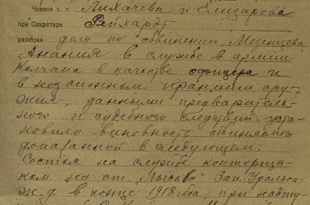 Членов т. т. Лихачева и Елизарова
при Секретаре Рейхардт
разобрав
дело по обвинению Мезенцева
Анания в службе в армии
Колчака в качестве офицера и
в незаконном хранении ору-
жия, данными предваритель-
ного и судебного следствия уста-
новило виновность
в следующем:
Состоя на службе конторщи-
ком на ст. "Лысьва" Зап. Уральск.
ж. д. в конце 1918 года, при насту-